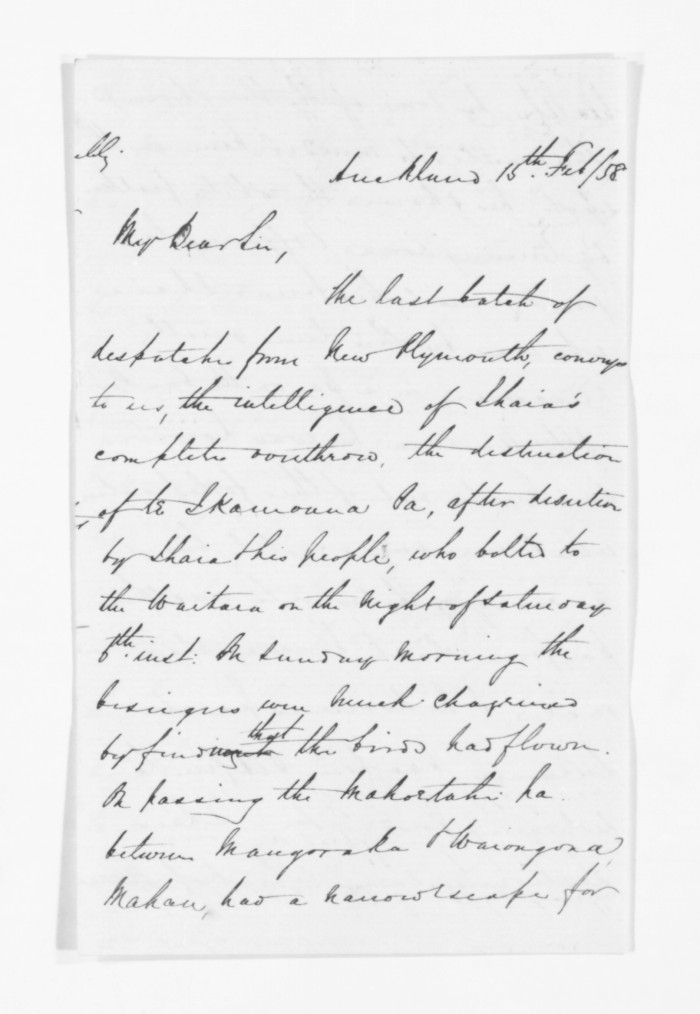 Auckland 15th. Feb/58
My Dear Sir,
The last batch of
despatches from New Plymouth, conveys
to us, the intelligence of Ihaia's
complete overthrow, the distruction
of te Ikamoana Pa, after desertion
by Ihaia & his people, who bolted to
the Waitara on the night of Saturday
6th. inst. On Sunday morning the
besiegers were much chagrined
by finding that the birds had flown.
On passing the Mahoetahi pa
between Mangoraka & Waiongona,
Mahau, had a narrow escape for